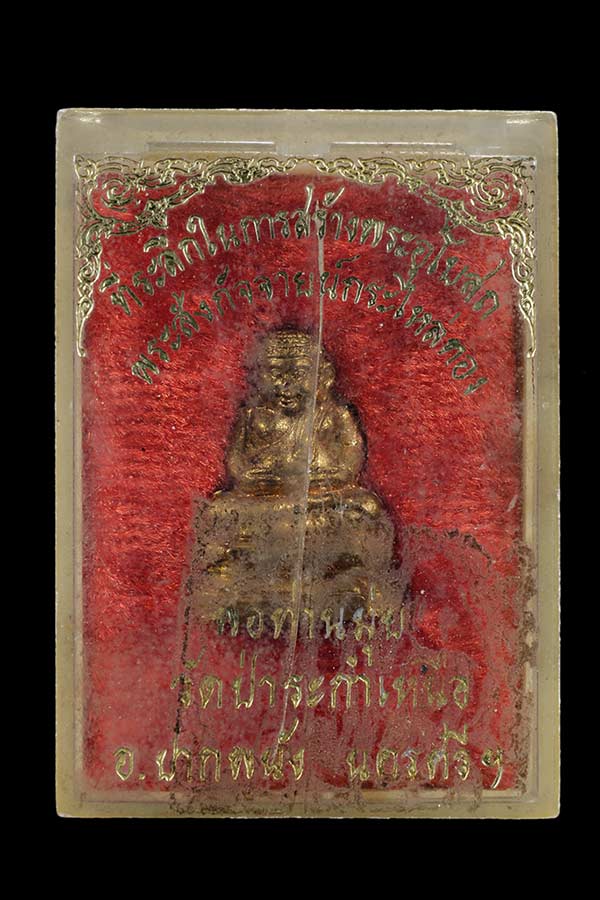 ที่ระลึกในการสร้างพระอุโบสถ
พระสังกัจจายน์กระไหล่ทอง
พ่อท่านมุ่ย
วัดป่าระกำเหนือ
อ.ปากพนัง นครศรีฯ